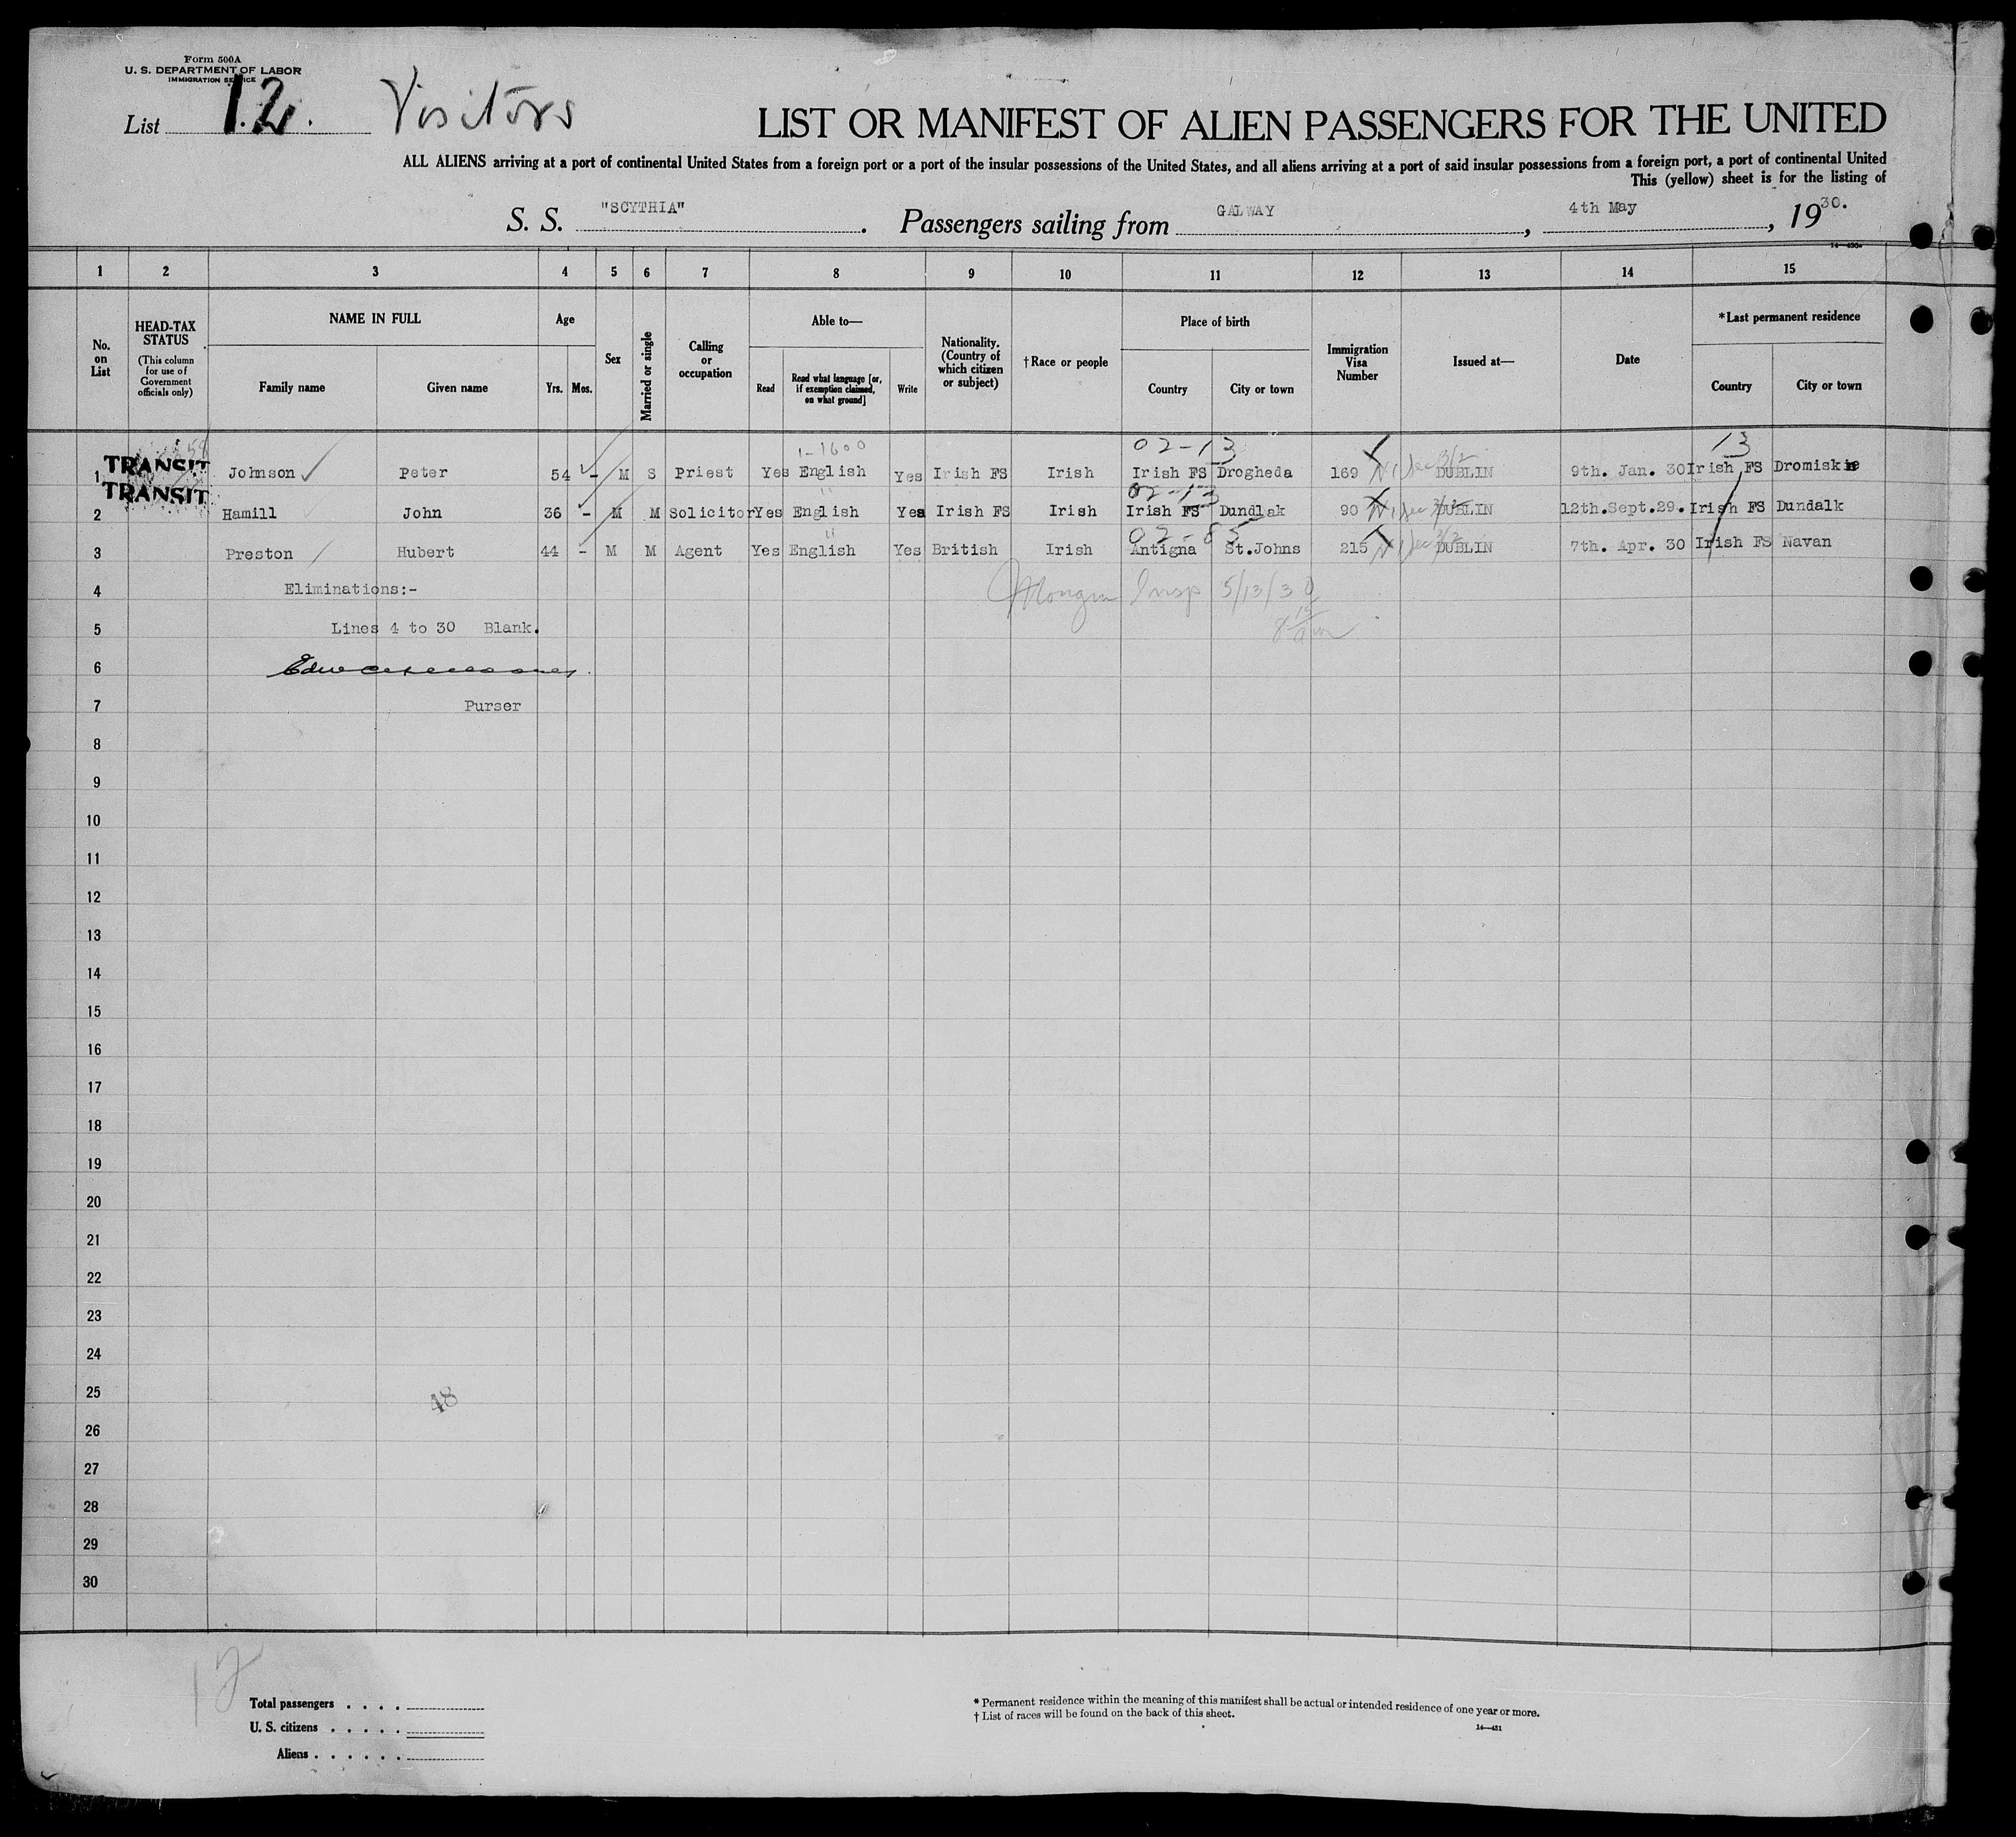 Form 500A
U. S. DEPARTMENT OF LABOR
IMMIGRATION SERVICE
List 12. Visitors
LIST OR MANIFEST OF ALIEN PASSENGERS FOR THE UNITED
ALL ALIENS arriving at a port of continental United States from a foreign port or a port of the insular possessions of the United States, and all aliens arriving at a port of said insular possessions from a foreign port, a port of continental United
This (yellow) sheet is for the listing of
S. S. "SCYTHIA". Passengers sailing from GALWAY, 4th May, 1930.
1 2 3 4 5 6 7 8 9 10 11 12 13 14 15
No. on List
HEAD-TAX STATUS
(This column for use of Government officials only)
NAME IN FULL
Family name Given name
Age
Yrs. Mos.
Sex
Married or single
Calling or occupation
Able to—
Read
Read what language [or, if exemption claimed, on what ground]
Write
Nationality. (Country of which citizen or subject)
†Race or people
Place of birth
Country City or town
Immigration Visa Number
Issued at—
Date
*Last permanent residence
Country City or town
1-1600 02-13 13
1 TRANSIT Johnson Peter 54 - M S Priest Yes English Yes Irish FS Irish Irish FS Drogheda 169 DUBLIN 9th. Jan. 30 Irish FS Dromiskin
TRANSIT
02-13
2 Hamill John 36 - M M Solicitor Yes English Yes Irish FS Irish Irish FS Dundlak 90 DUBLIN 12th.Sept.29. Irish FS Dundalk
02-85
3 Preston Hubert 44 - M M Agent Yes English Yes British Irish Antigna St.Johns 215 DUBLIN 7th. Apr. 30 Irish FS Navan
4 Eliminations:- Insp 5/13/30
5 Lines 4 to 30 Blank.
6
7 Purser
8
9
10
11
12
13
14
15
16
17
18
19
20
21
22
23
24
25 48
26
27
28
29
30
12
Total passengers . . . .
U. S. citizens . . . . .
Aliens . . . . . .
* Permanent residence within the meaning of this manifest shall be actual or intended residence of one year or more.
† List of races will be found on the back of this sheet.
14—431